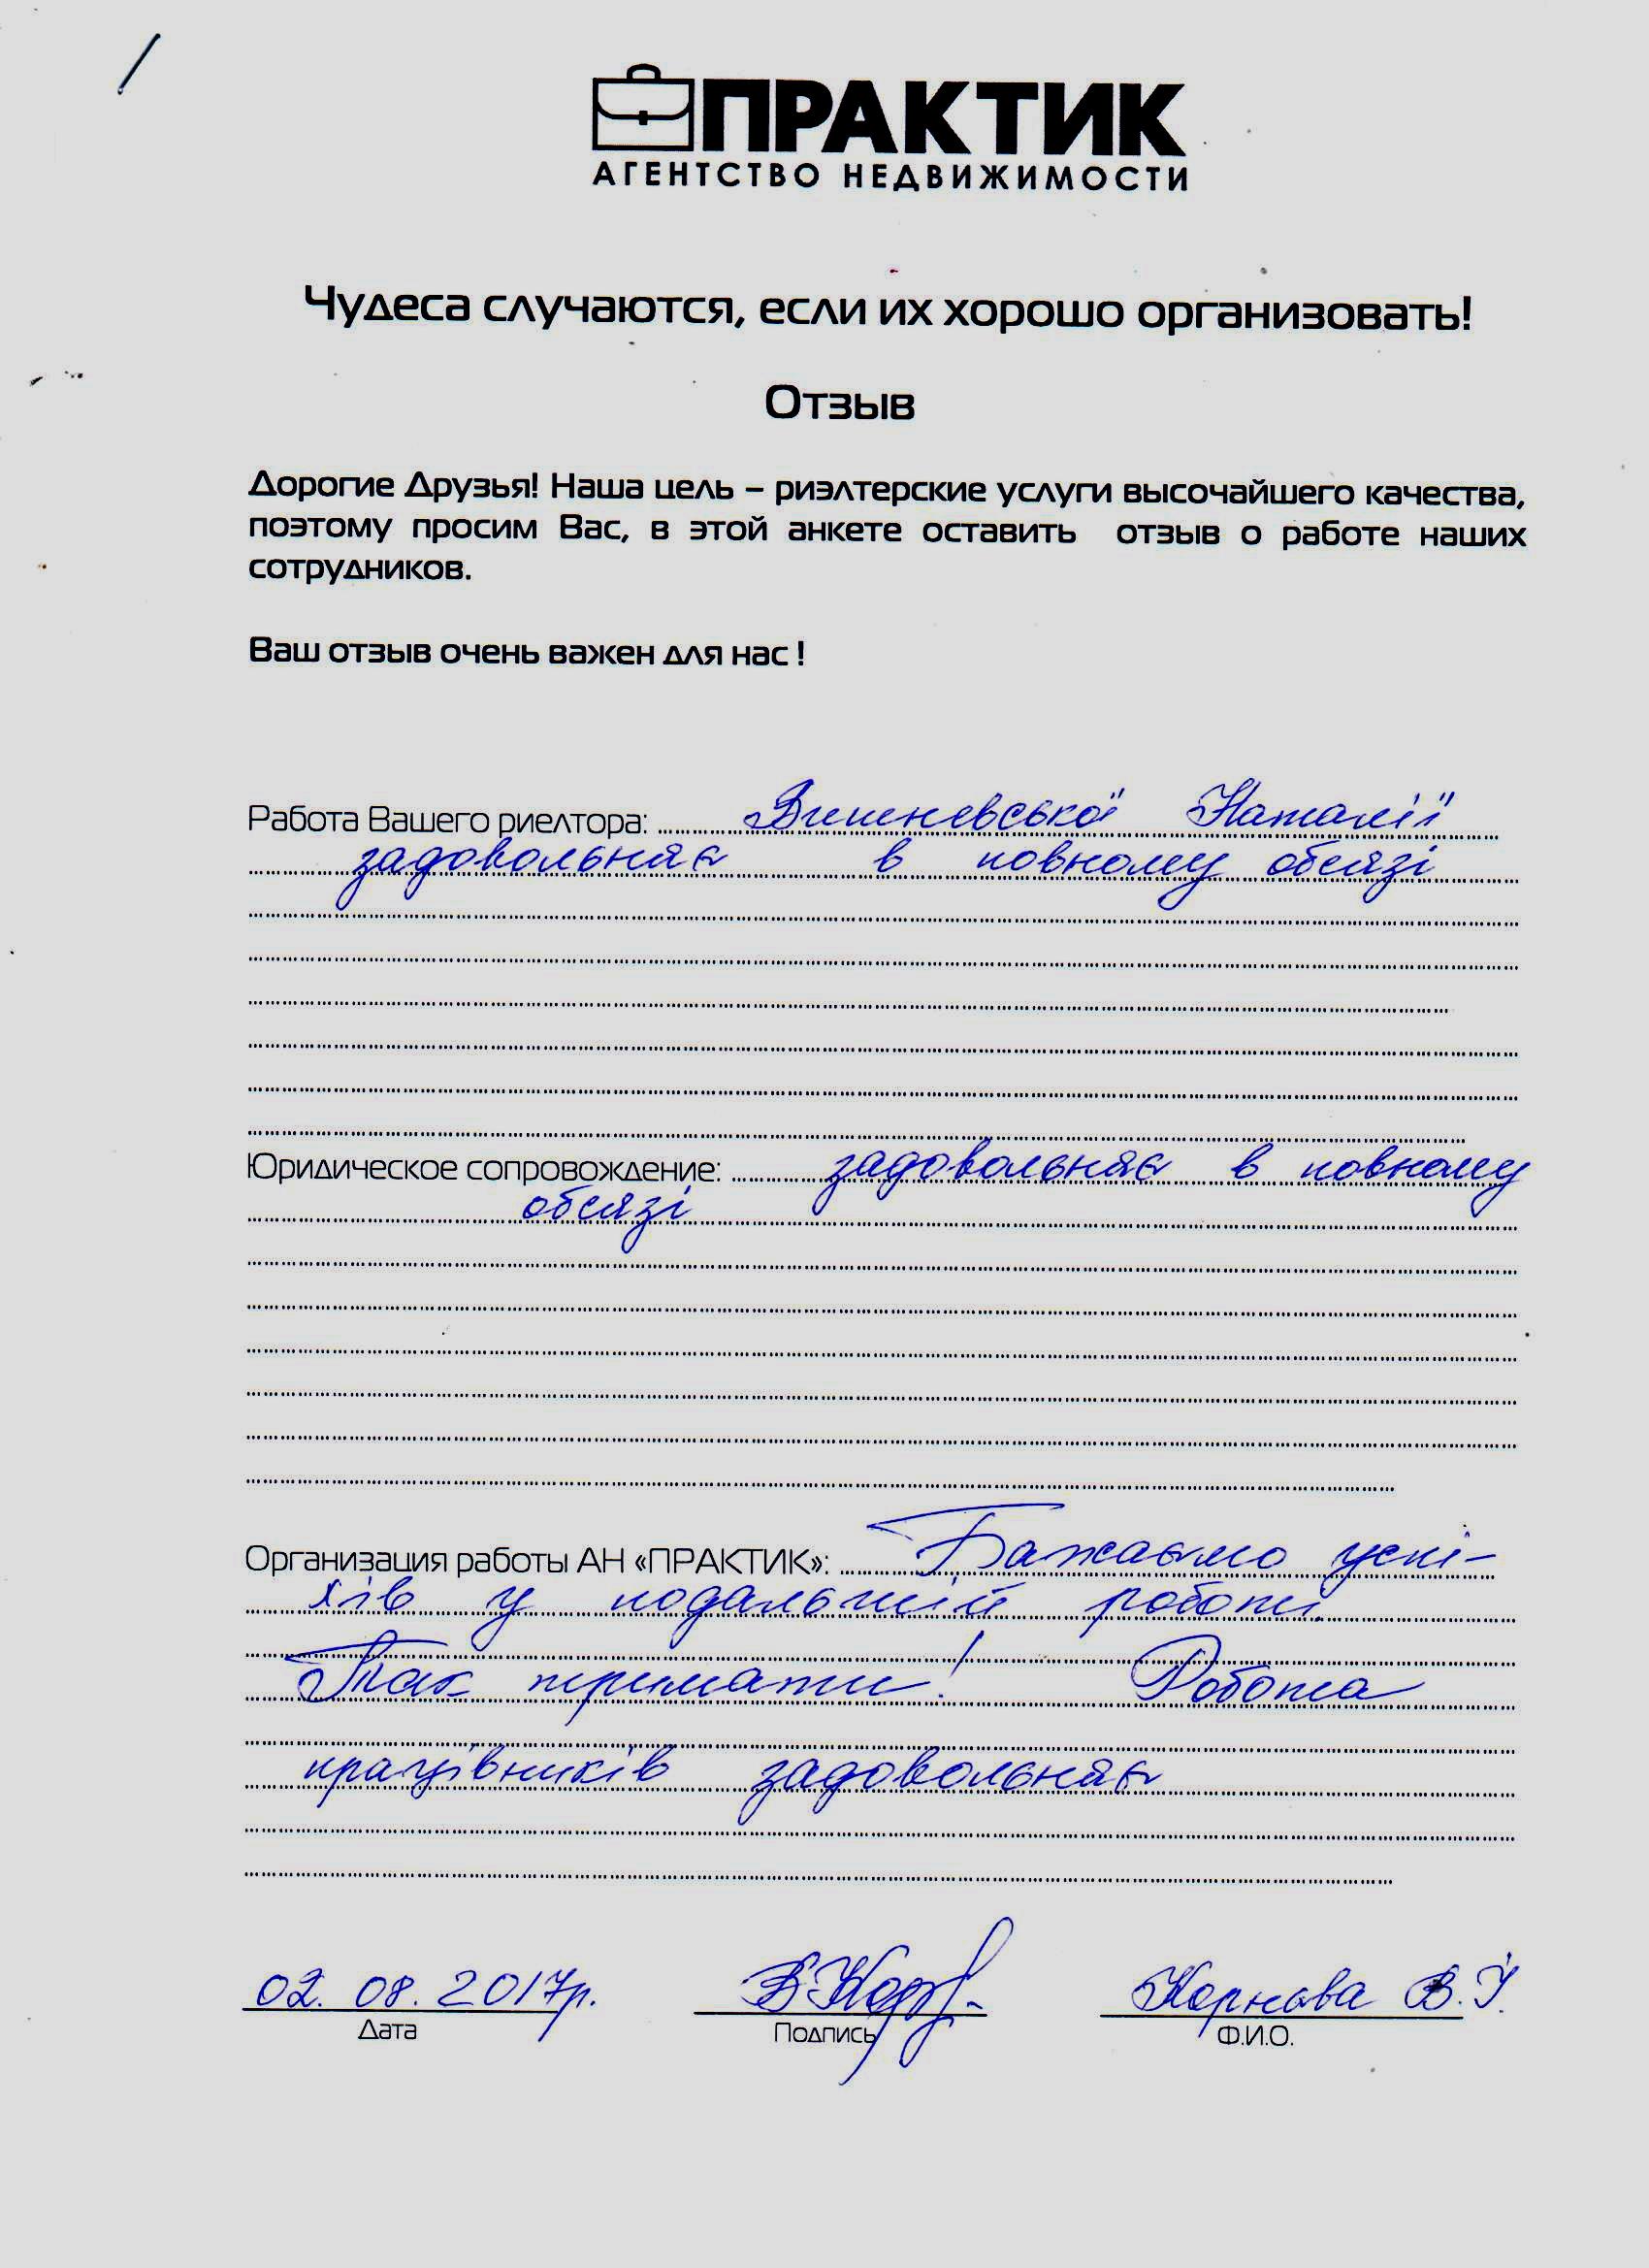 ПРАКТИК
АГЕНТСТВО НЕДВИЖИМОСТИ
Чудеса случаются, если их хорошо организовать!
Отзыв
Дорогие Друзья! Наша цель – риэлтерские услуги высочайшего качества,
поэтому просим Вас, в этой анкете оставить отзыв о работе наших
сотрудников.
Ваш отзыв очень важен для нас !
Работа Вашего риелтора: Вишневської Наталії
задовольняє в повному обсязі
Юридическое сопровождение: задовольняє в повному
обсязі
Организация работы АН «ПРАКТИК»: Бажаємо успі-
хів у подальшій роботі.
Так тримати! Робота
працівників задовольняє
02. 08. 2017р.
Дата Подпись Ф.И.О.